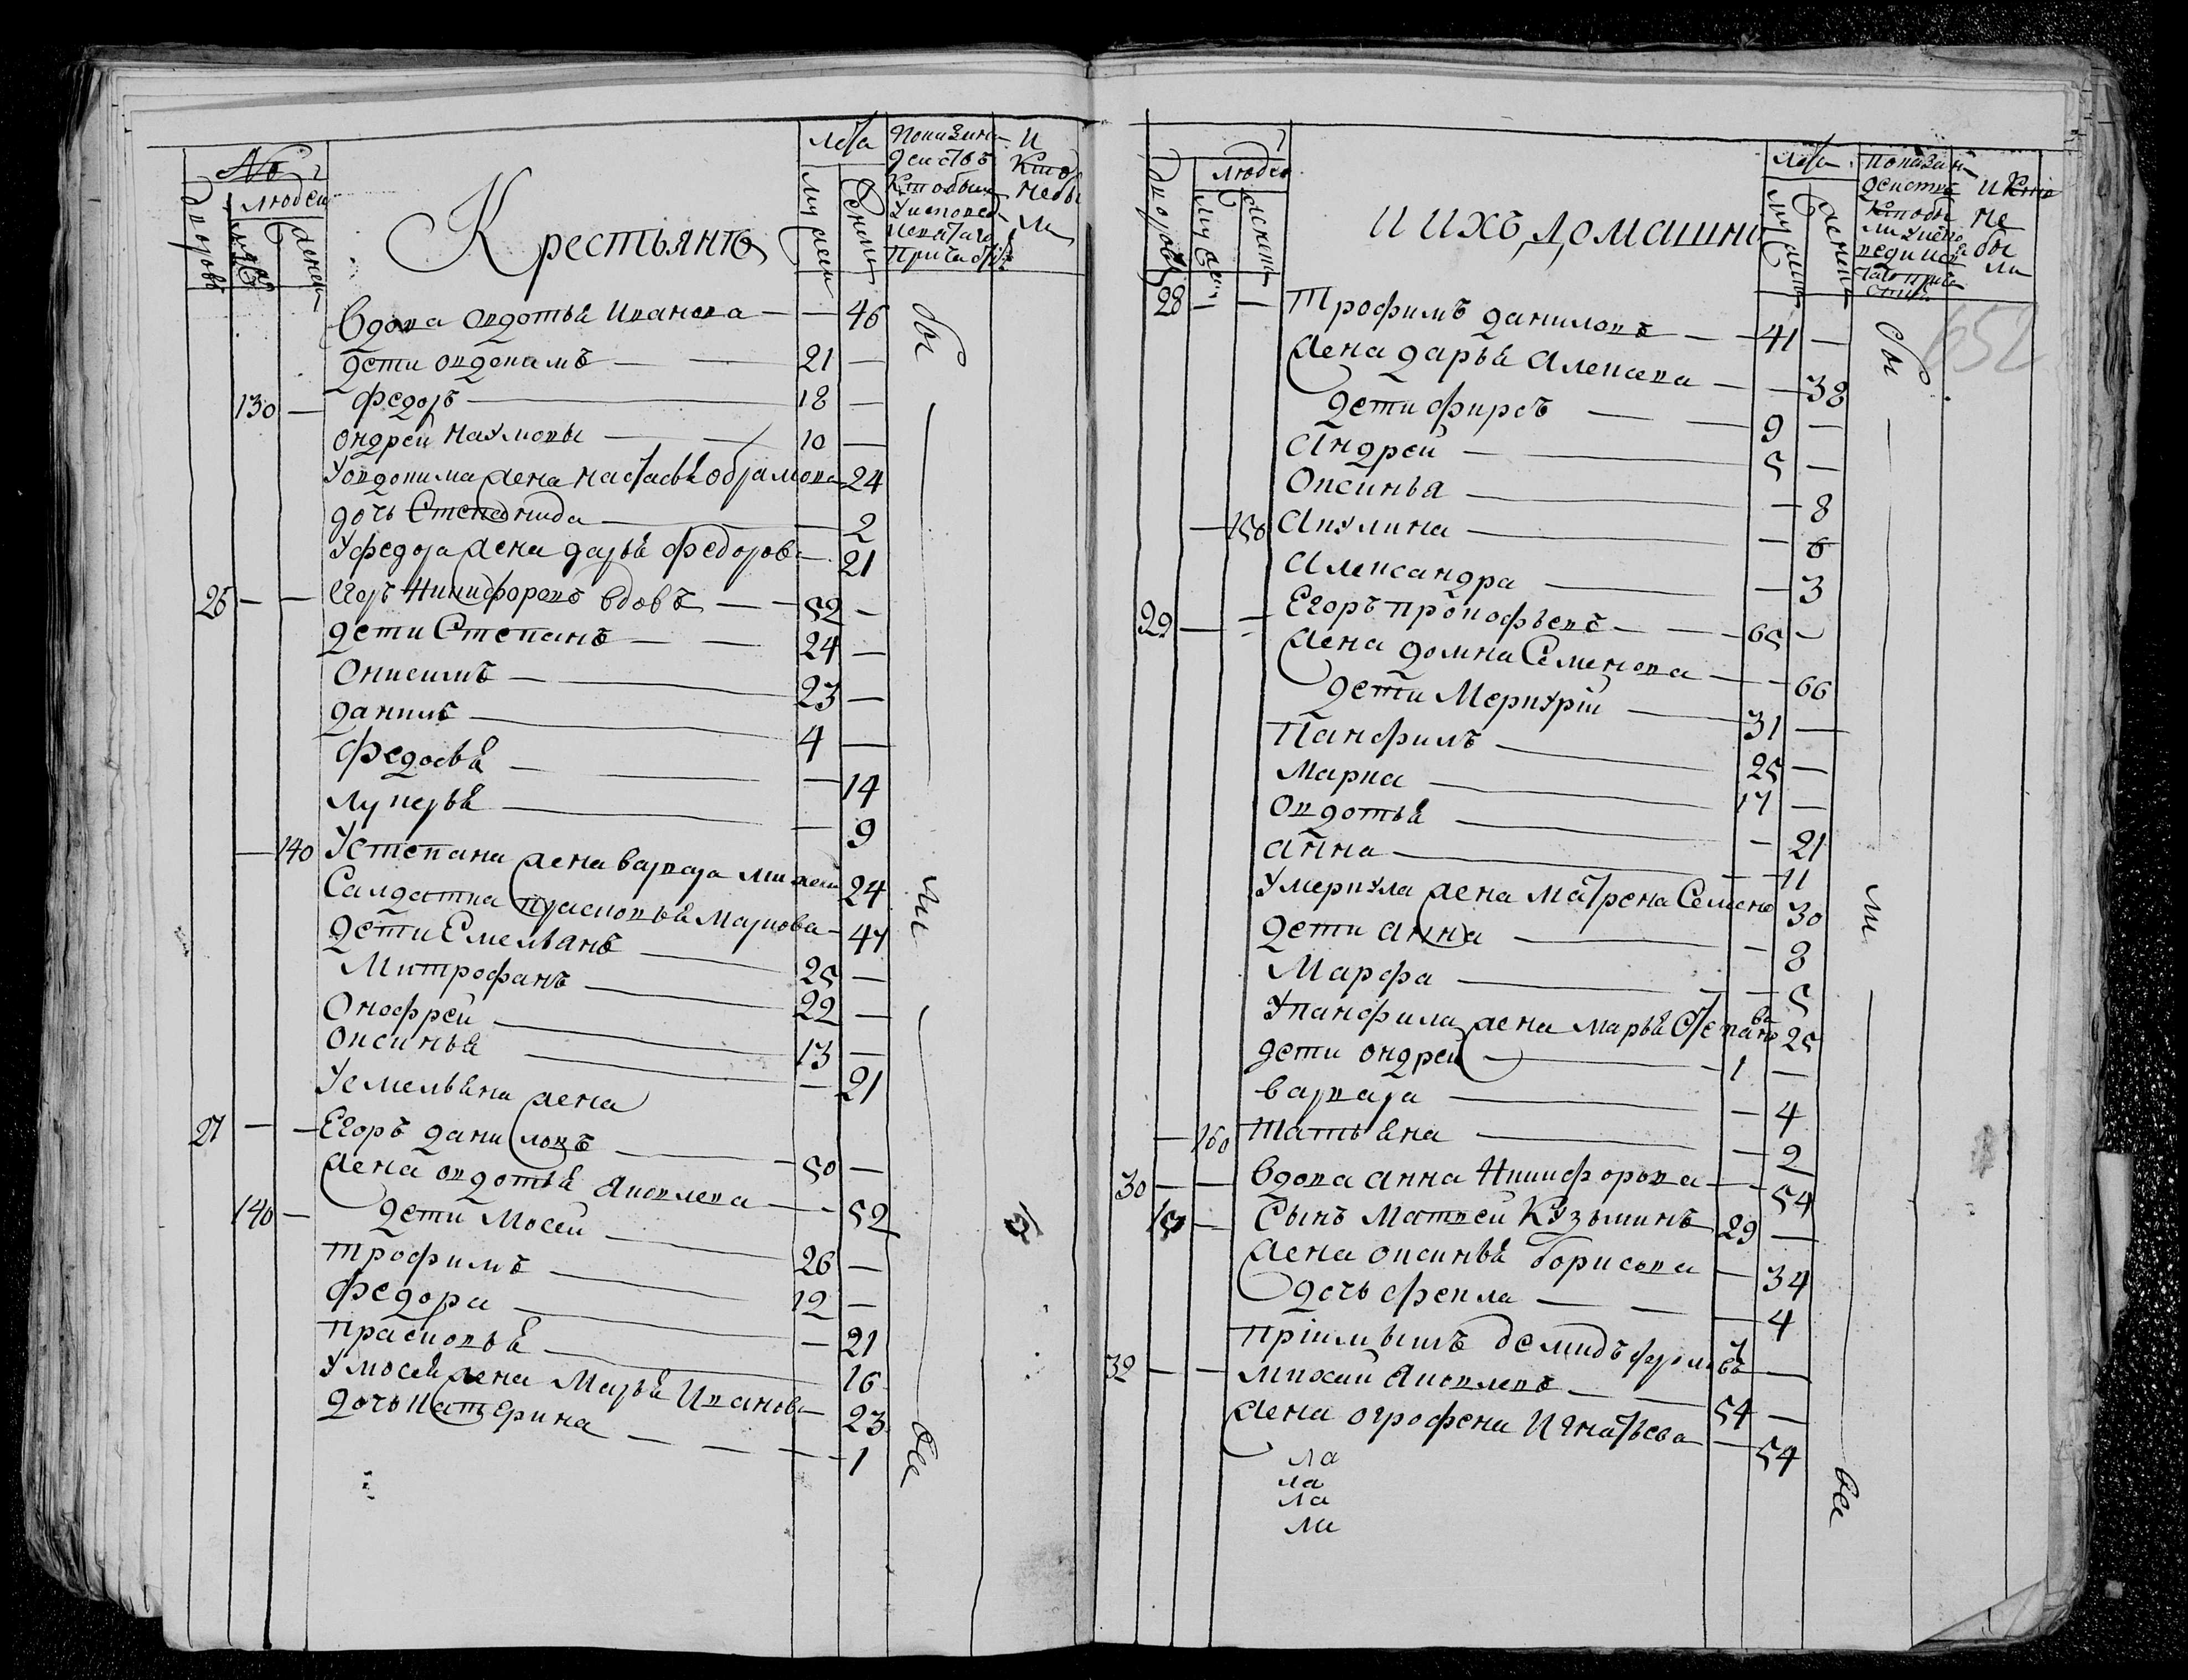 №
людеи
дворовъ
мужес
женск
Крестьянъ
лета
мужеск
женск
Показание
действъ
Кто были
у исповед
и святаго
Причастия
И
Кто
не бы
ли
Вдова овдотья Иванова — — 46
дети овдокимъ — — 21 —
130 — федоръ — 18 —
ондрей наумовы — — 10 —
У овдокима жена настасья обрамова — 24
дочь Степанида — — 2
У федора жена дарья федорова — 21
26 — — Егоръ Никифоровъ вдовъ — — 52 —
дети Степанъ — — 24 —
Онисимъ — — 23 —
данила — 4 —
Федосья — — — 14
лукерья — — 9
— 140 У степана жена варвара михеи 24
Салдатка прасковья Маркова — 47
дети Емельянъ — 25 —
Митрофанъ — 22 —
Онофреи — 13 —
Оксинья — — 21
У емельяна жена
27 — — Егоръ даниловъ — 50 —
жена овдотья Яковлева — — 52
140 — дети Мосеи — 26 —
трофимъ — 12 —
федора — — 21
прасковья — 16
У мосея жена Марья Иванова — 23
дочь Катерина — — — 1
бы
ли
все
людеи
дворовъ
мужеск
женск
И ИХЪ ДОМАШНИ
лета
мужеск
женск
показани
действъ
кто бы
ли у испо
веди и св
таго прича
стия
и Кто
не
бы
ли
652
28 — — Трофимъ даниловъ — — 41 —
жена дарья Алексева — — 38
дети фирсъ — — 9 —
Андрей — 5 —
Оксинья — — 8
— 150 Акулина — — 6
Александра — — 3
29 — — Егоръ прокофьевъ — — 65 —
жена домна Семенова — — 66
дети Меркурiи — 31 —
Панфилъ — 25 —
Марка — 17 —
Овдотья — — 21
анна — — 11
У меркула жена матрена Семено 30
дети анна — — 8
Марфа — — 5
У панфила жена марья Степанова 25
дети ондрей — 1 —
варвара — — 4
— 160 татьяна — — 2
30 — — Вдова анна Никифорова — — 54
— Сынъ Матвеи Кузьминъ 29 —
жена оксинья борисова — 34
дочь фекла — — — 4
прiимышъ демидъ
32 — — михаи Яковлевъ — 54 —
жена огрофена Игнатьева — 54
ла
ла
ла
ли
бы
ли
все